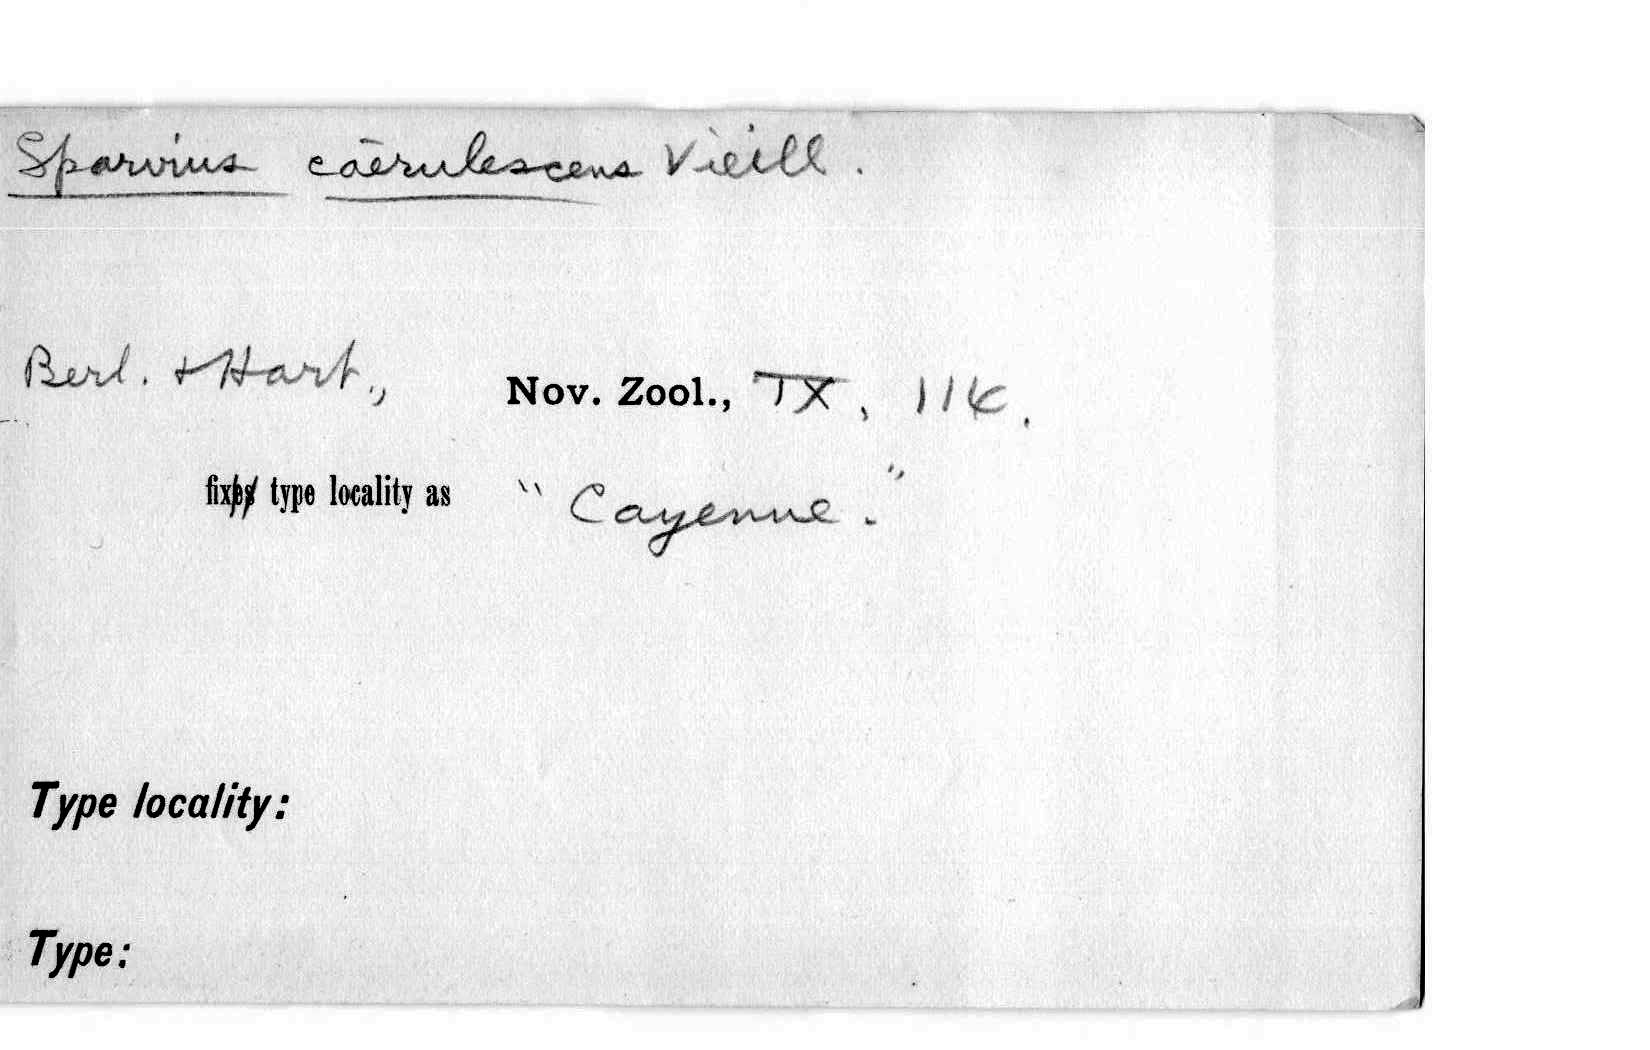 Sparvius caerulescens Vieill.
Berl. + Hart., Nov. Zool., IX, 114.
fixes type locality as "Cayenne."
Type locality:
Type: